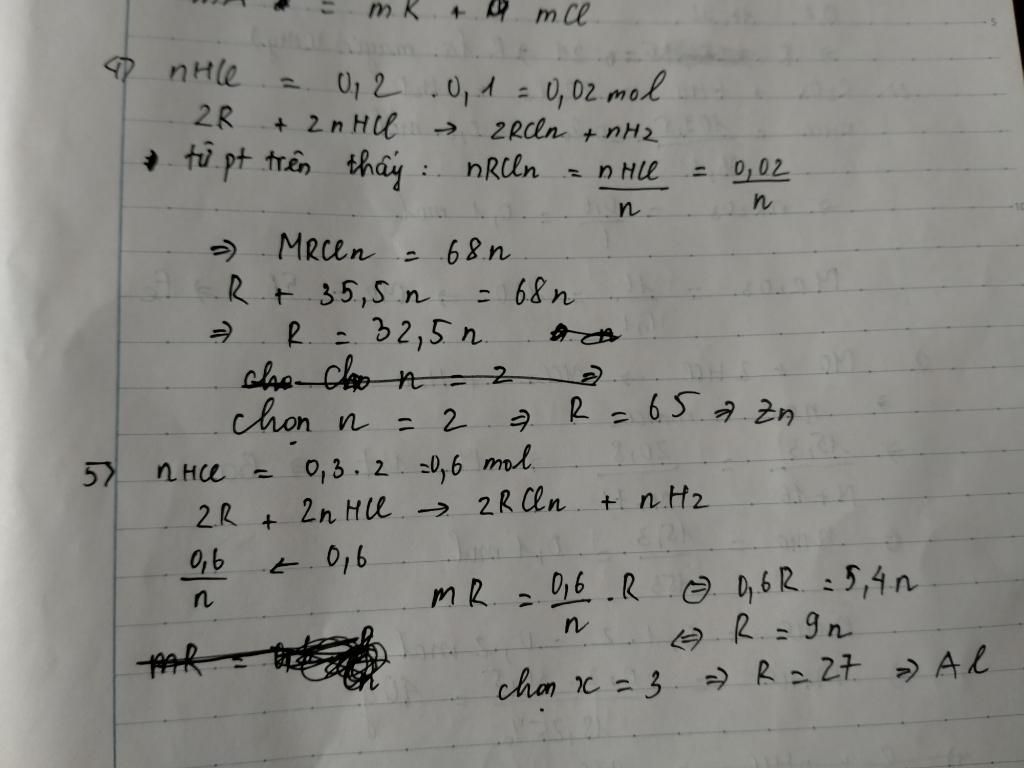 = mR + mCl
4) nHCl = 0,2 . 0,1 = 0,02 mol
2R + 2nHCl → 2RCln + nH2
từ pt trên thấy : nRCln = nHCl/n = 0,02/n
⇒ MRCln = 68n
R + 35,5n = 68n
⇒ R = 32,5n
cho Cho n = 2 ⇒
chọn n = 2 ⇒ R = 65 ⇒ Zn
5) nHCl = 0,3 . 2 = 0,6 mol
2R + 2nHCl → 2RCln + nH2
0,6/n ← 0,6
mR = 0,6/n . R ⇔ 0,6R = 5,4n
⇔ R = 9n
mR =
chọn x = 3 ⇒ R = 27 ⇒ Al